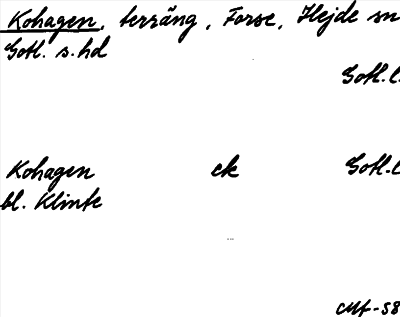 Kohagen, terräng, Forse, Hejde sn
Gotl. s. hd
Gotl. l.
Kohagen ck Gotl. l
bl. Klinte